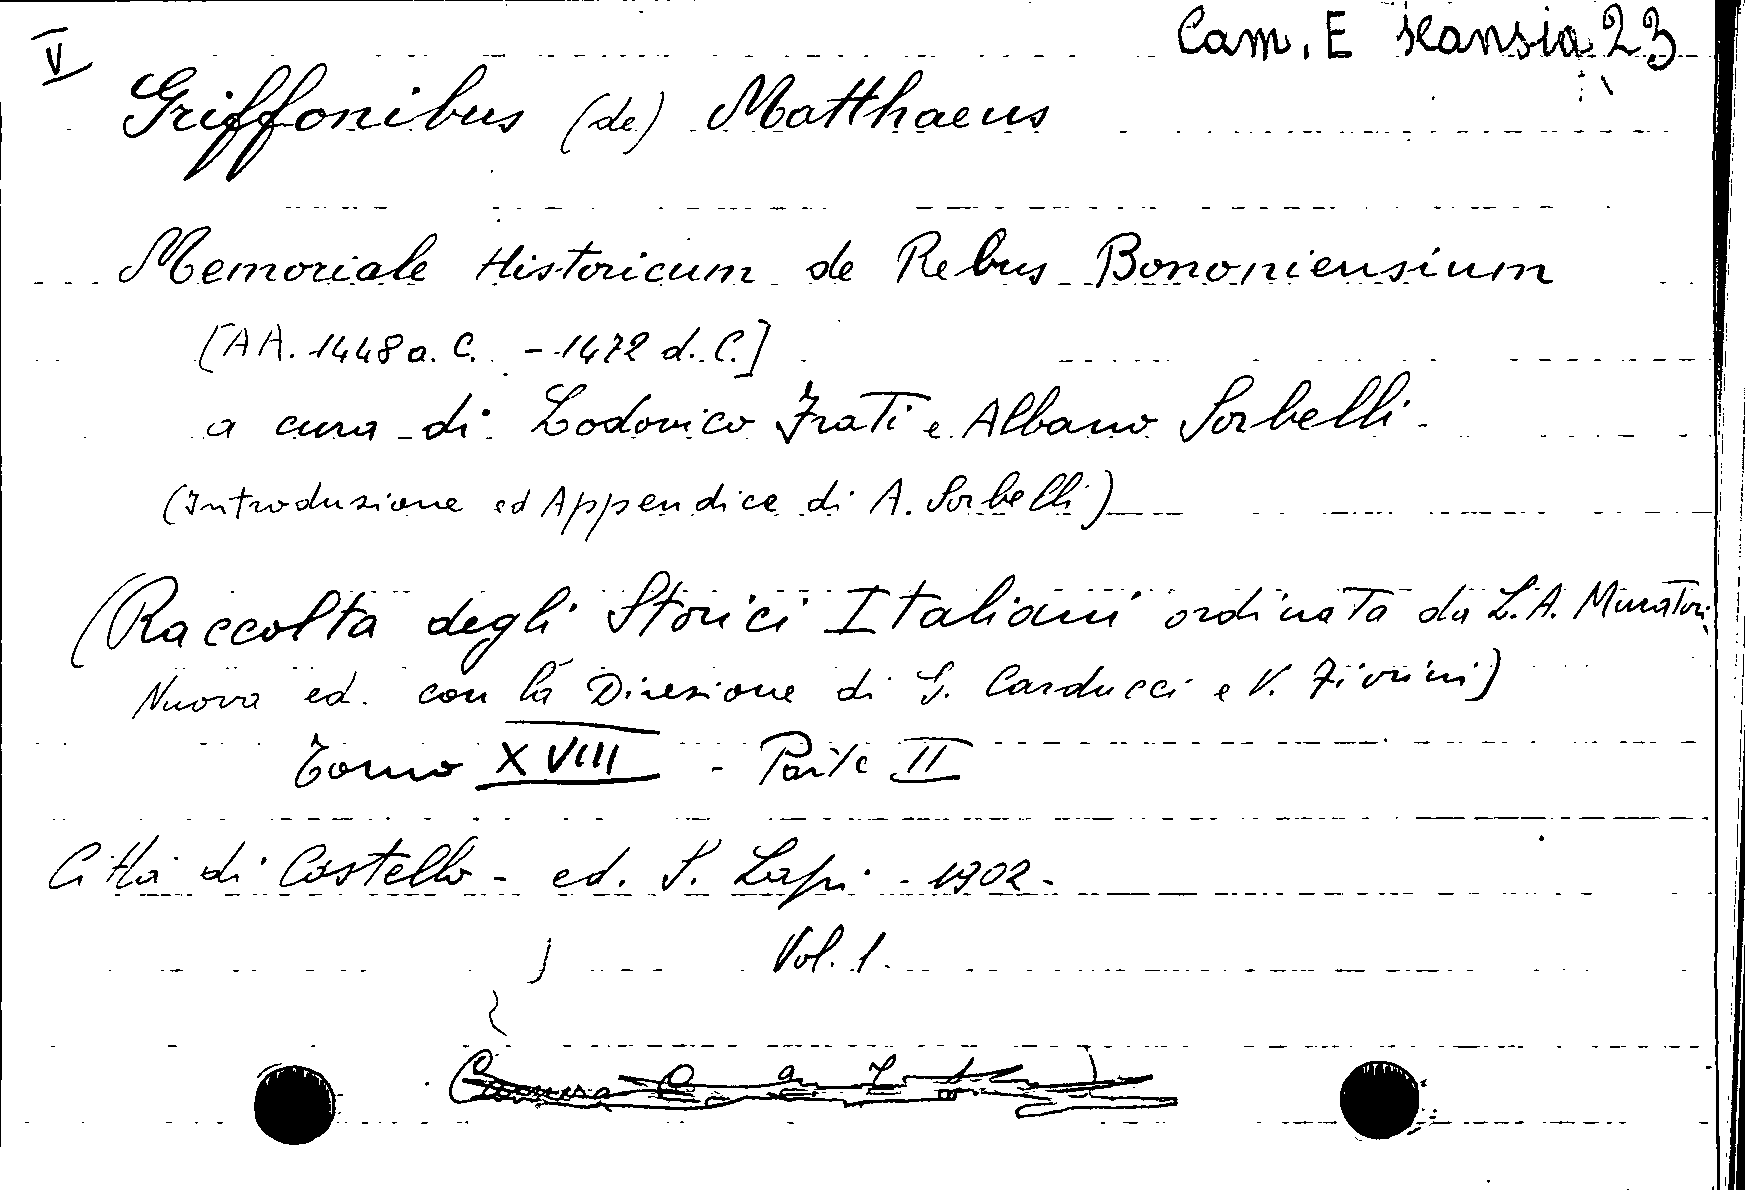 V
Cam. E scansia 23
Griffonibus (de) Matthaeus
Memoriale Historicum de Rebus Bononiensium
[AA. 1448 a. C. - 1472 d. C.]
a cura di Lodovico Frati e Albano Sorbelli
(Introduzione ed Appendice di A. Sorbelli)
(Raccolta degli Storici Italiani ordinata da L. A. Muratori,
Nuova ed. con la Direzione di G. Carducci e V. Fiorini)
Tomo XVIII - Parte II
Città di Castello - ed. S. Lapi - 1902 -
Vol. 1.